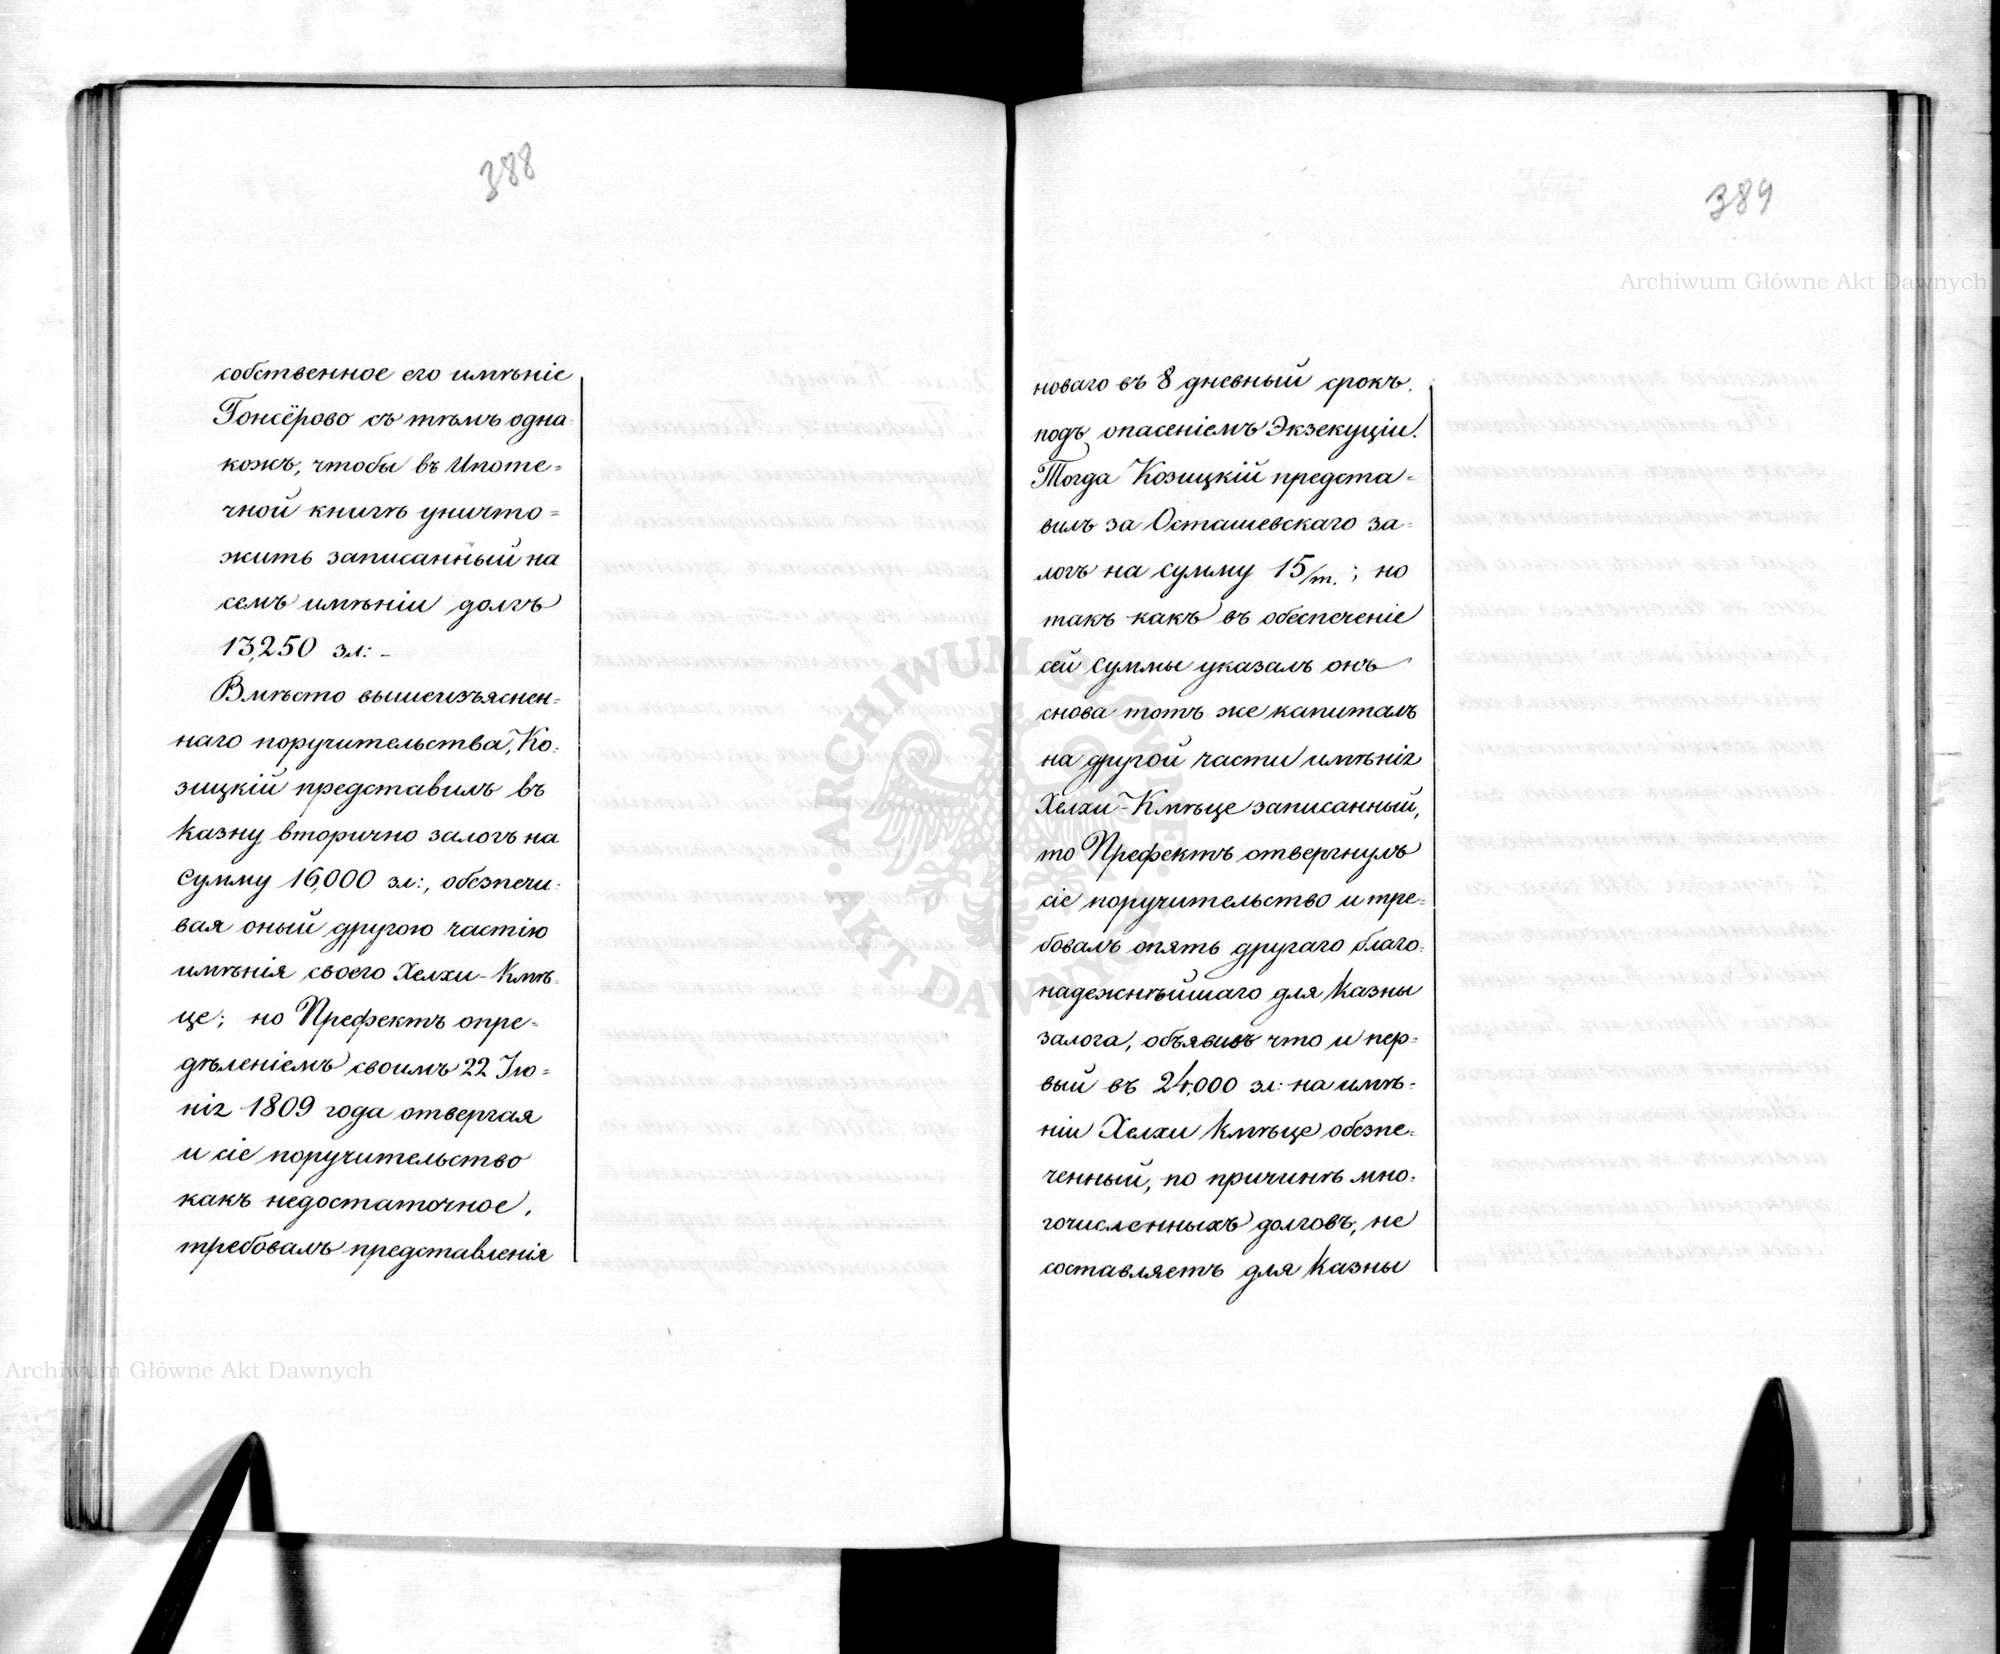 388
собственное его имѣніе
Гонсёрово съ тѣмъ одна-
кожъ, чтобы въ Ипоте-
чной книгѣ уничто-
жить записанный на
семъ имѣніи долгъ
13,250 зл: -
Вмѣсто вышеизъяснен-
наго поручительства, Ко-
зицкій представилъ въ
казну вторично залогъ на
сумму 16,000 зл:, обезпечи-
вая оный другою частію
имѣнія своего Хелхи-Кмѣ-
це; но Префектъ опре-
дѣленіемъ своимъ 22 Ію-
нія 1809 года отвергая
и сіе поручительство
какъ недостаточное,
требовалъ представленія
389
новаго въ 8 дневный срокъ,
подъ опасеніемъ Экзекуціи.
Тогда Козицкій предста-
вилъ за Осташевскаго за-
логъ на сумму 15/m.; но
такъ какъ въ обеспеченіе
сей суммы указалъ онъ
снова тотъ же капиталъ
на другой части имѣнія
Хелхи-Кмѣце записанный,
то Префектъ отвергнулъ
сіе поручительство и тре-
бовалъ опять другаго благо-
надежнѣйшаго для Казны
залога, объявивъ что и пер-
вый въ 24,000 зл: на имѣ-
ніи Хелхи Кмѣце обезпе-
ченный, по причинѣ мно-
гочисленныхъ долговъ, не
составляетъ для Казны
Archiwum Główne Akt Dawnych
Archiwum Główne Akt Dawnych
ARCHIWUM GŁÓWNE · AKT DAWNYCH ·